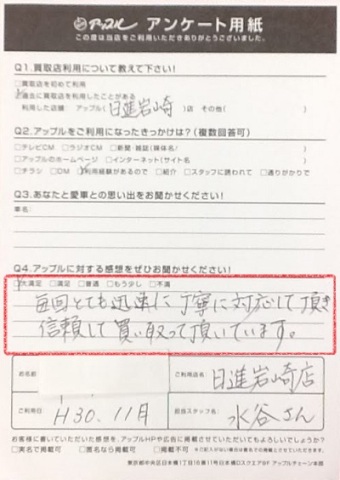 アップル アンケート用紙
この度は当店をご利用いただきありがとうございました。
Q1.買取店利用について教えて下さい!
□買取店を初めて利用
☑過去に買取店を利用したことがある
利用した店舗: アップル(日進岩崎)店 その他( )
Q2.アップルをご利用になったきっかけは?(複数回答可)
□テレビCM □ラジオCM □新聞・雑誌(媒体名 )
□アップルのホームページ □インターネット(サイト名 )
□チラシ □DM ☑利用経験があるので □紹介 □スタッフに誘われて □通りがかりで
Q3.あなたと愛車との思い出をお聞かせください!
車名:
Q4.アップルに対する感想をぜひお聞かせください!
☑大満足 □満足 □普通 □もう少し □不満
毎回とても迅速に丁寧に対応して頂き
信頼して買い取って頂いています。
お名前
ご利用店名 日進岩崎店
ご利用日 H30.11月
担当スタッフ名 水谷さん
お客様に書いていただいた感想を、アップルHPや広告に掲載させていただいてもよろしいでしょうか?
□実名で掲載可 □匿名なら掲載可 □掲載不可
東京都中央区日本橋1丁目16番11号日本橋Dスクエア8F アップルチェーン本部